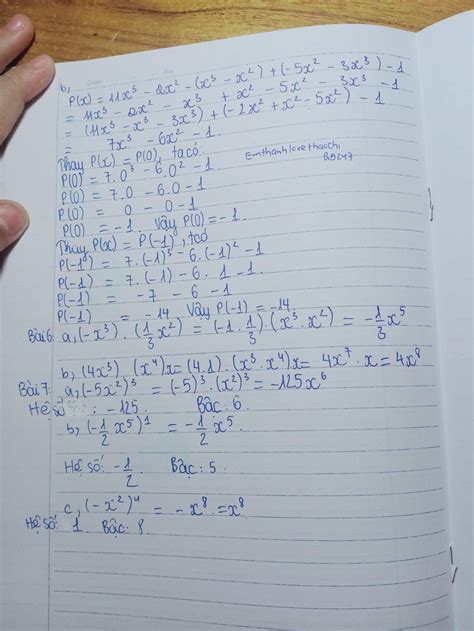 b,
P(x) = 11x³ - 2x² - (x³ - x²) + (-5x² - 3x³) - 1
= 11x³ - 2x² - x³ + x² - 5x² - 3x³ - 1
= (11x³ - x³ - 3x³) + (-2x² + x² - 5x²) - 1
= 7x³ - 6x² - 1.
Thay P(x) = P(0), ta có:
P(0) = 7.0³ - 6.0² - 1
Emthanhlovethaochi
P(0) = 7.0 - 6.0 - 1
P(0) = 0 - 0 - 1
P(0) = -1. Vậy P(0) = -1.
Thay P(x) = P(-1), tcó
P(-1) = 7.(-1)³ - 6.(-1)² - 1
P(-1) = 7.(-1) - 6. 1 - 1.
P(-1) = -7 - 6 - 1
P(-1) = -14. Vậy P(-1) = -14.
Bài 6: a, (-x³) . (1/3 x²) = (-1 . 1/3) (x³ . x²) = -1/3 x⁵
b, (4x³) . (x⁴)x = (4.1) . (x³ . x⁴)x = 4x⁷ . x = 4x⁸
Bài 7: a, (-5x²)³ = (-5)³ . (x²)³ = -125x⁶
Hệ số : -125. Bậc: 6.
b, (-1/2 x⁵)¹ = -1/2 x⁵.
Hệ số: -1/2. Bậc: 5.
c, (-x²)⁴ = -x⁸ = x⁸
Hệ số: 1. Bậc: 8.